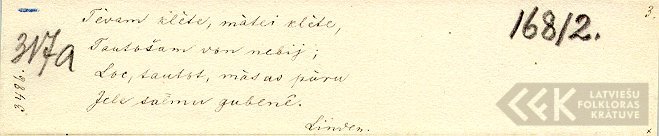 3.
168/2.
317a
3486.
Tēvam klēts, mātei klēts,
Tautōšam von nebij;
Loc, tautōt, māsas pūru
Jele salmu gubenē.
Linden.
LATVIEŠU
FOLKLORAS
KRĀTUVE